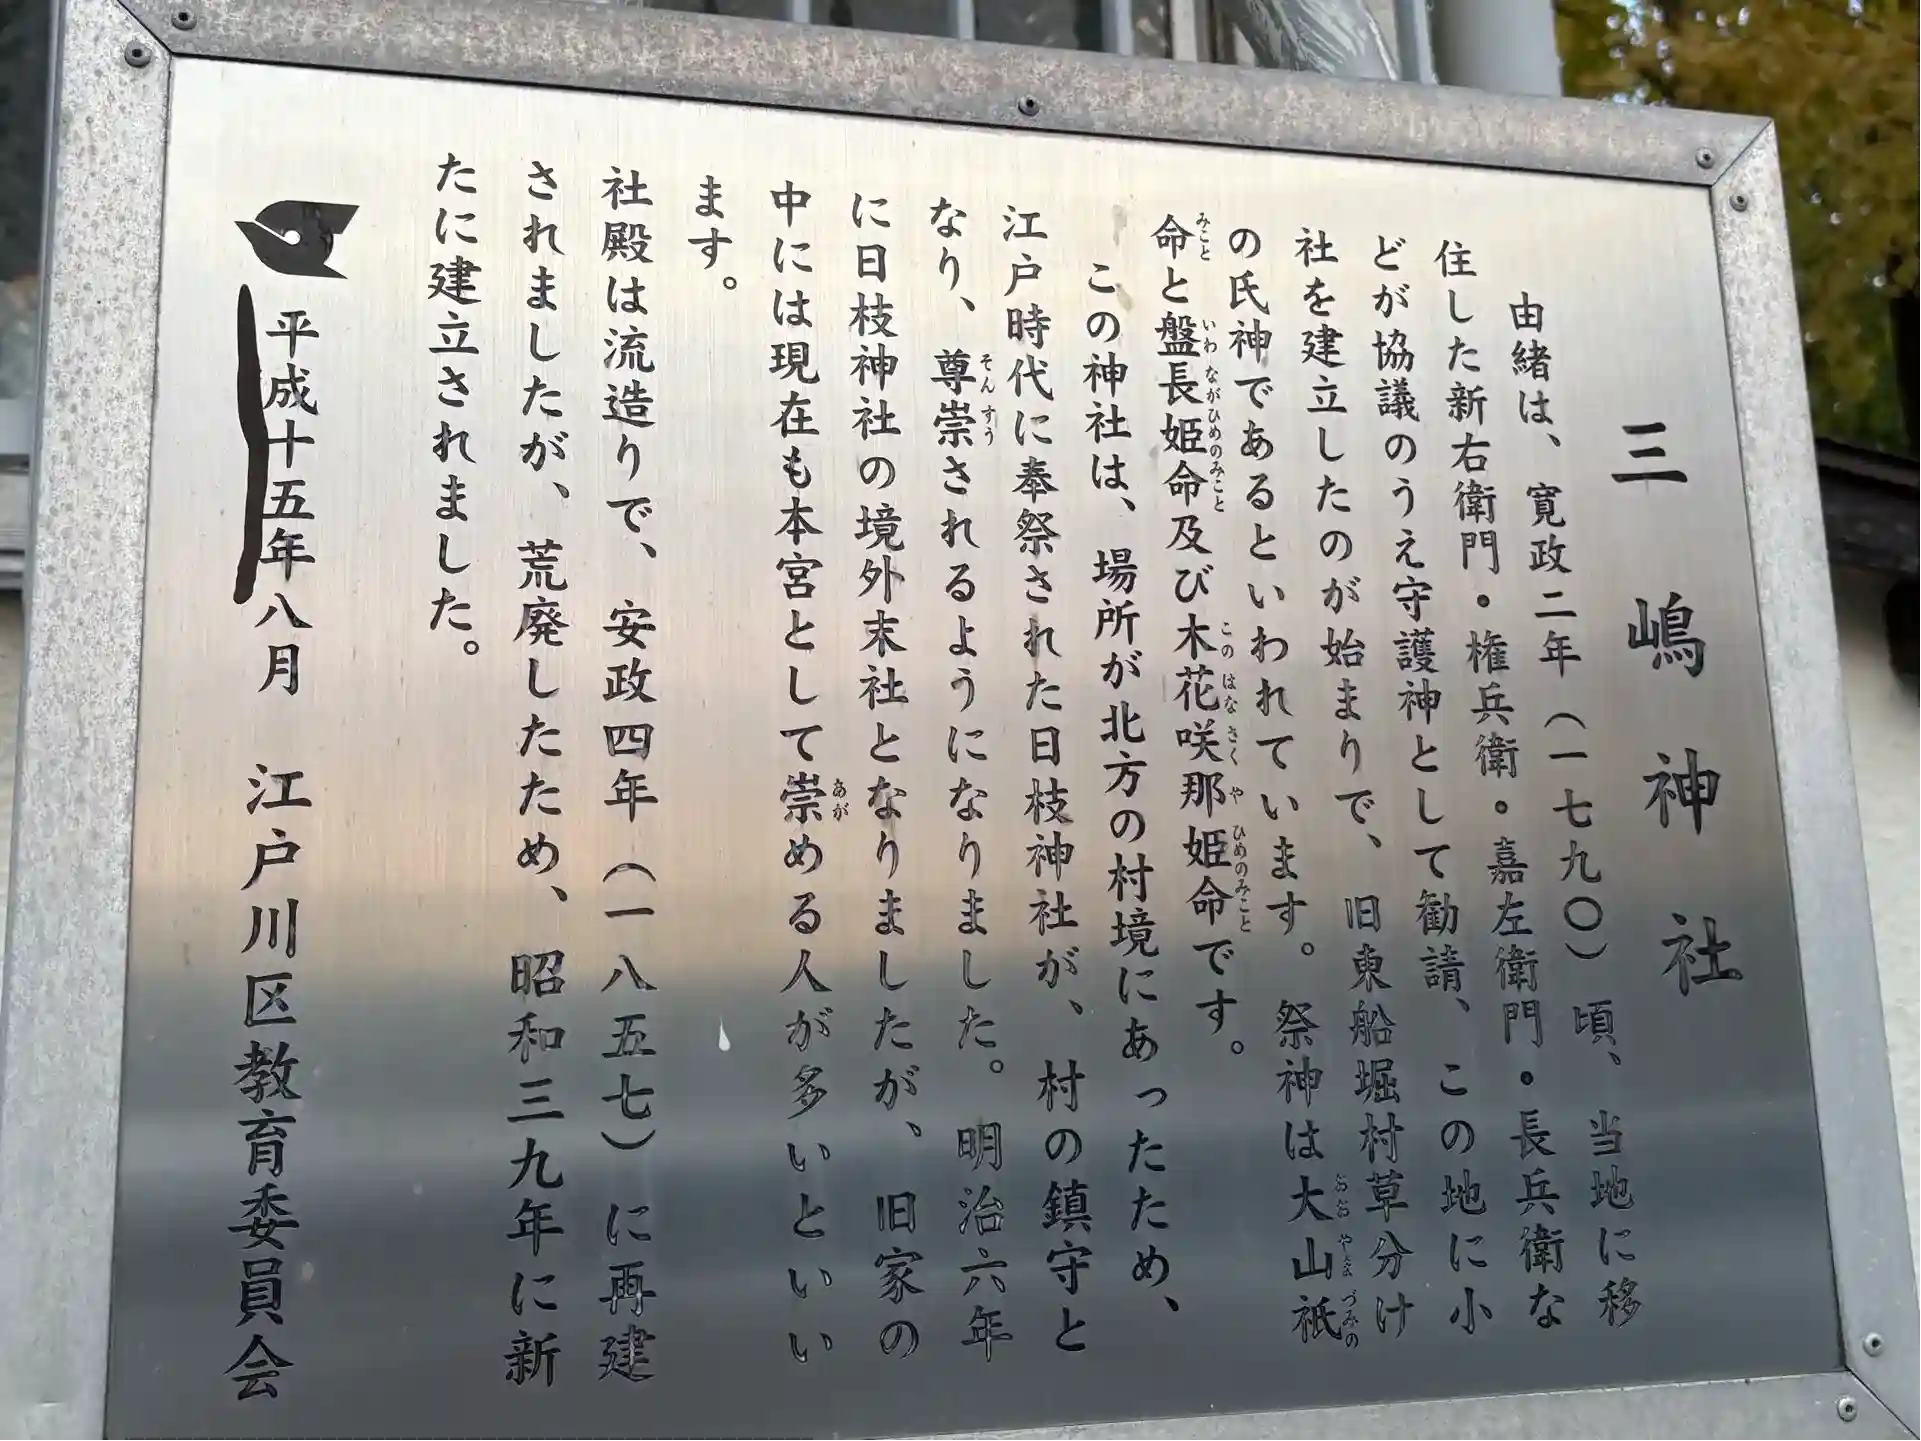 三嶋神社
由緒は、寛政二年（一七九〇）頃、当地に移
住した新右衛門・権兵衛・嘉左衛門・長兵衛な
どが協議のうえ守護神として勧請、この地に小
社を建立したのが始まりで、旧東船堀村草分け
の氏神であるといわれています。祭神は大山祇
おおやまづみの
命と盤長姫命及び木花咲那姫命です。
みこと いわながひめのみこと このはなさくやひめのみこと
この神社は、場所が北方の村境にあったため、
江戸時代に奉祭された日枝神社が、村の鎮守と
なり、尊崇されるようになりました。明治六年
そんすう
に日枝神社の境外末社となりましたが、旧家の
中には現在も本宮として崇める人が多いといい
あが
ます。
社殿は流造りで、安政四年（一八五七）に再建
されましたが、荒廃したため、昭和三九年に新
たに建立されました。
平成十五年八月 江戸川区教育委員会